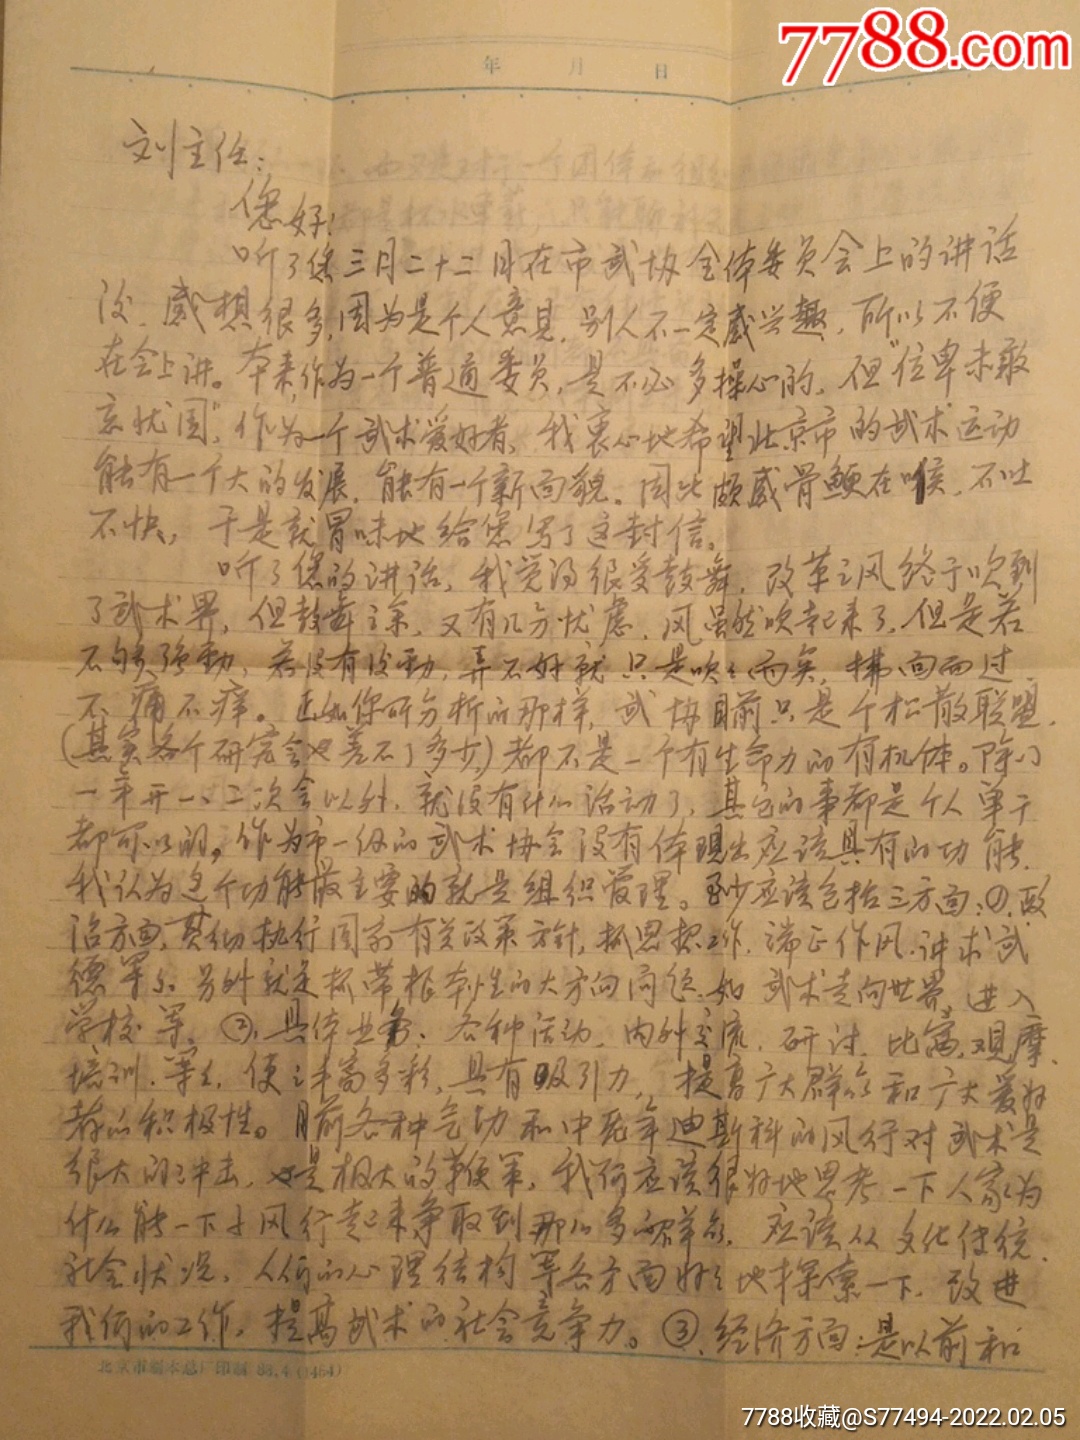 7788.com
年 月 日
刘主任：
您好！
听了您三月二十二日在市武协全体委员会上的讲话
没，感想很多，因为是个人意见，别人不一定感兴趣，所以不便
在会上讲。本来，作为一个普通委员，是不必多操心的，但“位卑未敢
忘忧国”，作为一个武术爱好者，我衷心地希望北京市的武术运动
能有一个大的发展，能有一个新面貌。因此颇感骨鲠在喉，不吐
不快，于是就冒昧地给您写了这封信。
听了您的讲话，我觉得很受鼓舞，改革之风终于吹到
了武术界，但鼓舞之余，又有几分忧虑，风虽然吹起来了，但是若
不够强劲，若没有后劲，弄不好就只是吹吹而矣，拂面而过，
不痛不痒。正如您所分析的那样，武协目前只是个松散联盟，
（其实各个研究会也差不了多少）都不是一个有生命力的有机体。除了
一年开一、二次会以外，就没有什么活动了，其它的事都是个人单干
都可以的。作为市一级的武术协会没有体现出应该具有的功能，
我认为这个功能最主要的就是组织管理。至少应该包括三方面：①，政
治方面，贯彻执行国家有关政策方针，抓思想工作，端正作风，讲求武
德等等。另外就是抓带根本性的大方向问题，如武术走向世界，进入
学校等。②，具体业务：各种活动，内外交流，研讨，比赛，观摩，
培训，等等，使之丰富多彩，具有吸引力，提高广大群众和广大爱好
者的积极性。目前各种气功和中老年迪斯科的风行对武术是
很大的冲击，也是极大的鞭策，我们应该很好地思考一下人家为
什么能一下子风行起来争取到那么多的群众，应该从文化传统，
社会状况，人们的心理结构等各方面好好地探索一下，改进
我们的工作，提高武术的社会竞争力。③，经济方面：是以前和
北京市刷本总厂印制 85.4 (1464)
7788收藏@S77494-2022.02.05